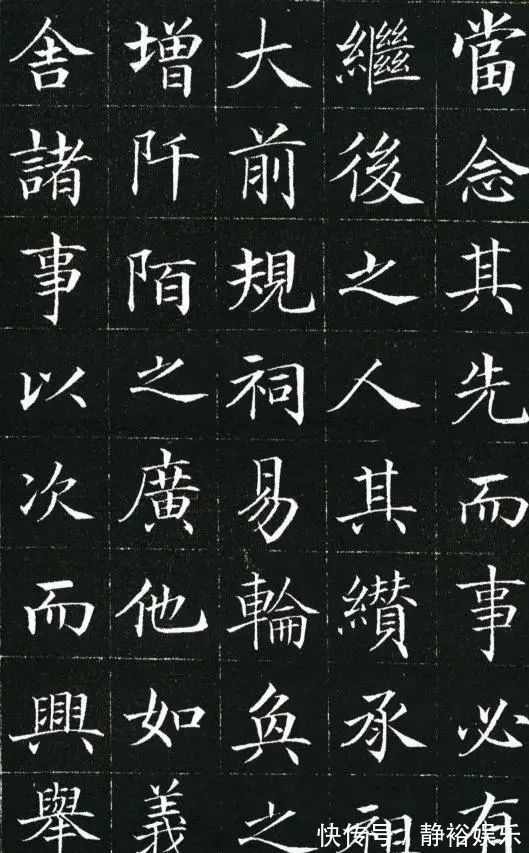 當念其先而事必有
繼後之人其纉承祖
大前規祠易輪奐之
增阡陌之廣他如義
舍諸事以次而興舉
快传号/静裕娱乐